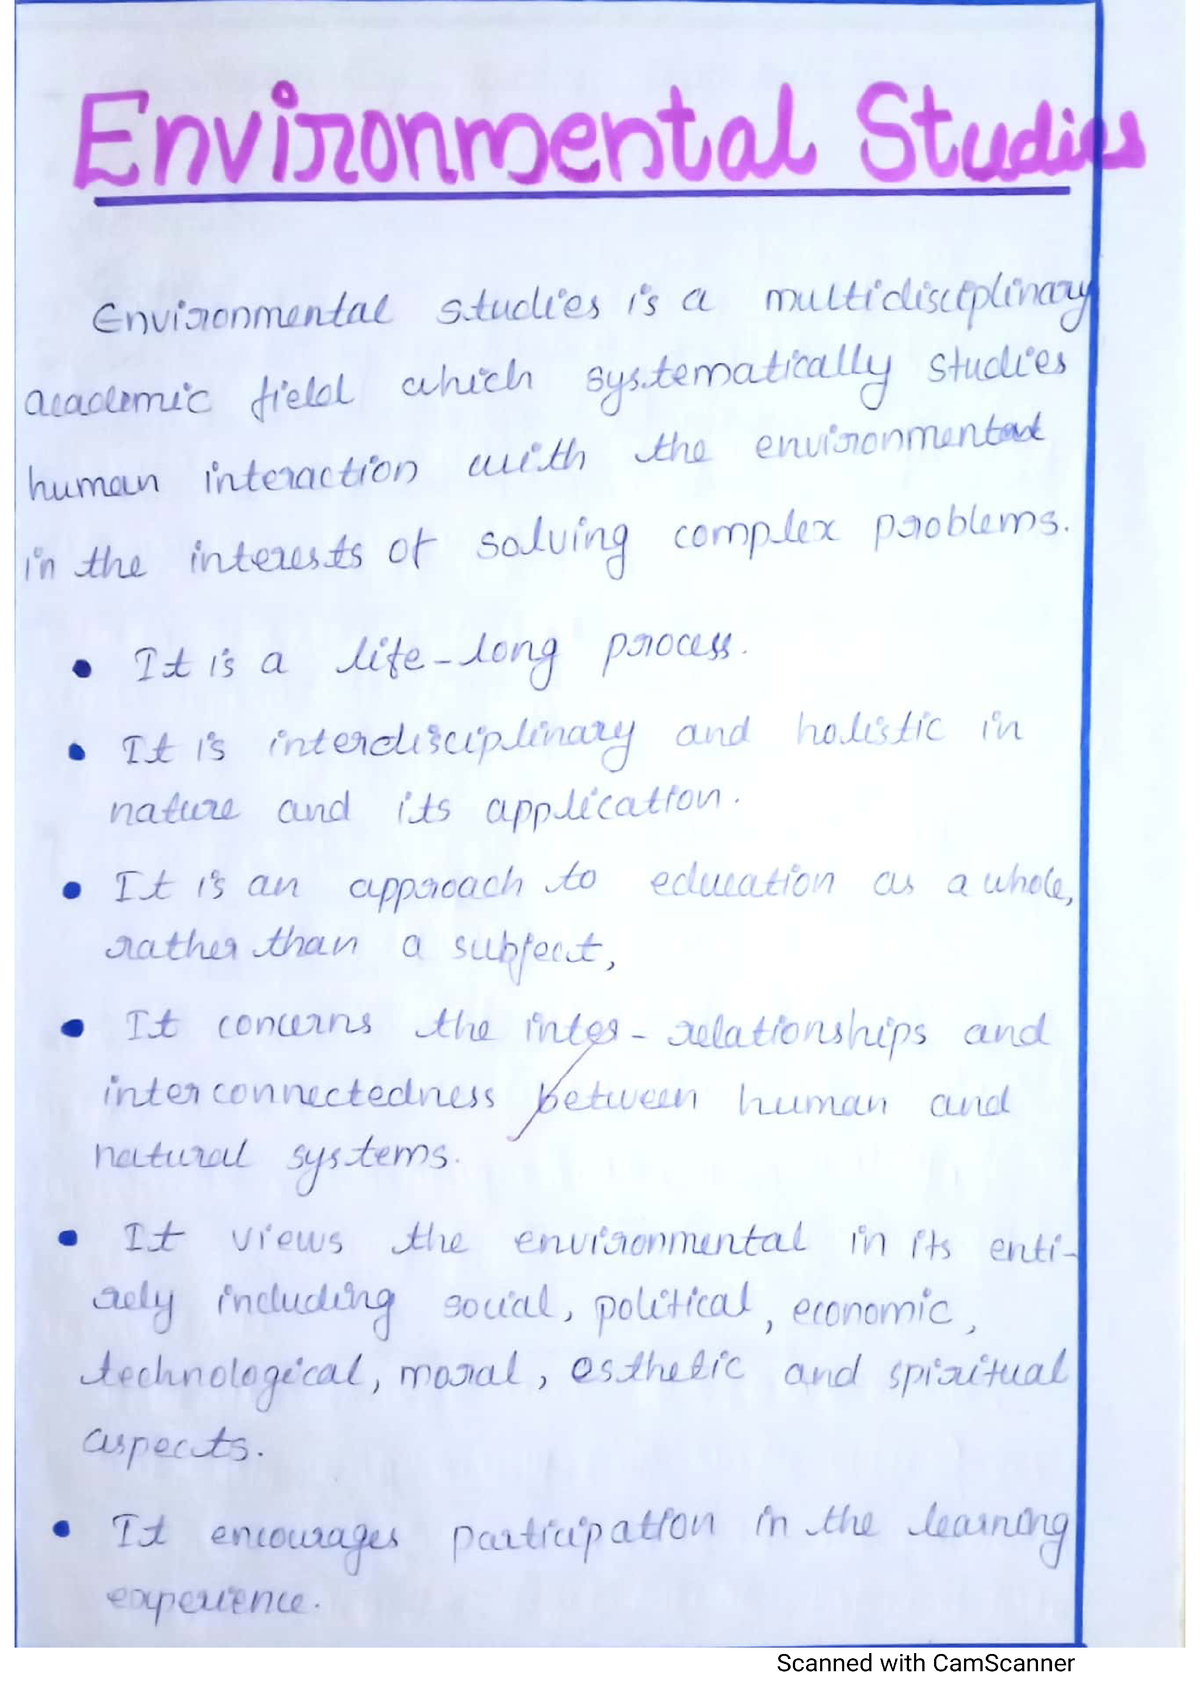 Environmental Studies
Environmental studies is a multidisciplinary
academic field which systematically studies
human interaction with the environmental
in the interests of solving complex problems.
• It is a life-long process.
• It is interdisciplinary and holistic in
nature and its application.
• It is an approach to education as a whole,
rather than a subject,
• It concerns the inter-relationships and
interconnectedness between human and
natural systems.
• It views the environmental in its enti-
rely including social, political, economic,
technological, moral, esthetic and spiritual
aspects.
• It encourages participation in the learning
experience.
Scanned with CamScanner